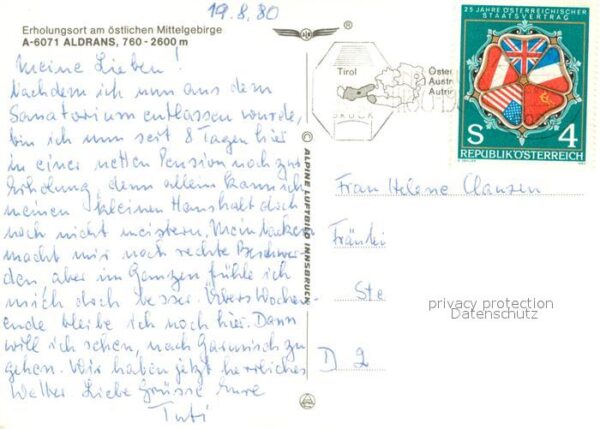 19.8.80
Erholungsort am östlichen Mittelgebirge
A-6071 ALDRANS, 760 - 2600 m
Meine Lieben!
Nachdem ich nun aus dem
Sanatorium entlassen wurde,
bin ich nun seit 8 Tagen hier
in einer netten Pension noch zur
Erholung, denn allein kann ich
meinen kleinen Haushalt doch
noch nicht meistern. Mein
macht mir noch rechte Beschwer
den, aber im Ganzen fühle ich
mich doch besser. Übers Wochen-
ende bleibe ich noch hier. Dann
will ich sehen, nach Garmisch zu
gehen. Wir haben jetzt herrliches
Wetter. Liebe Grüsse Eure
Tuti
© ALPINE LUFTBILD INNSBRUCK
Tirol
25 JAHRE ÖSTERREICHISCHER
STAATSVERTRAG
S 4
REPUBLIK ÖSTERREICH
Frau Helene Clausen
Ste
privacy protection
Datenschutz
D 2